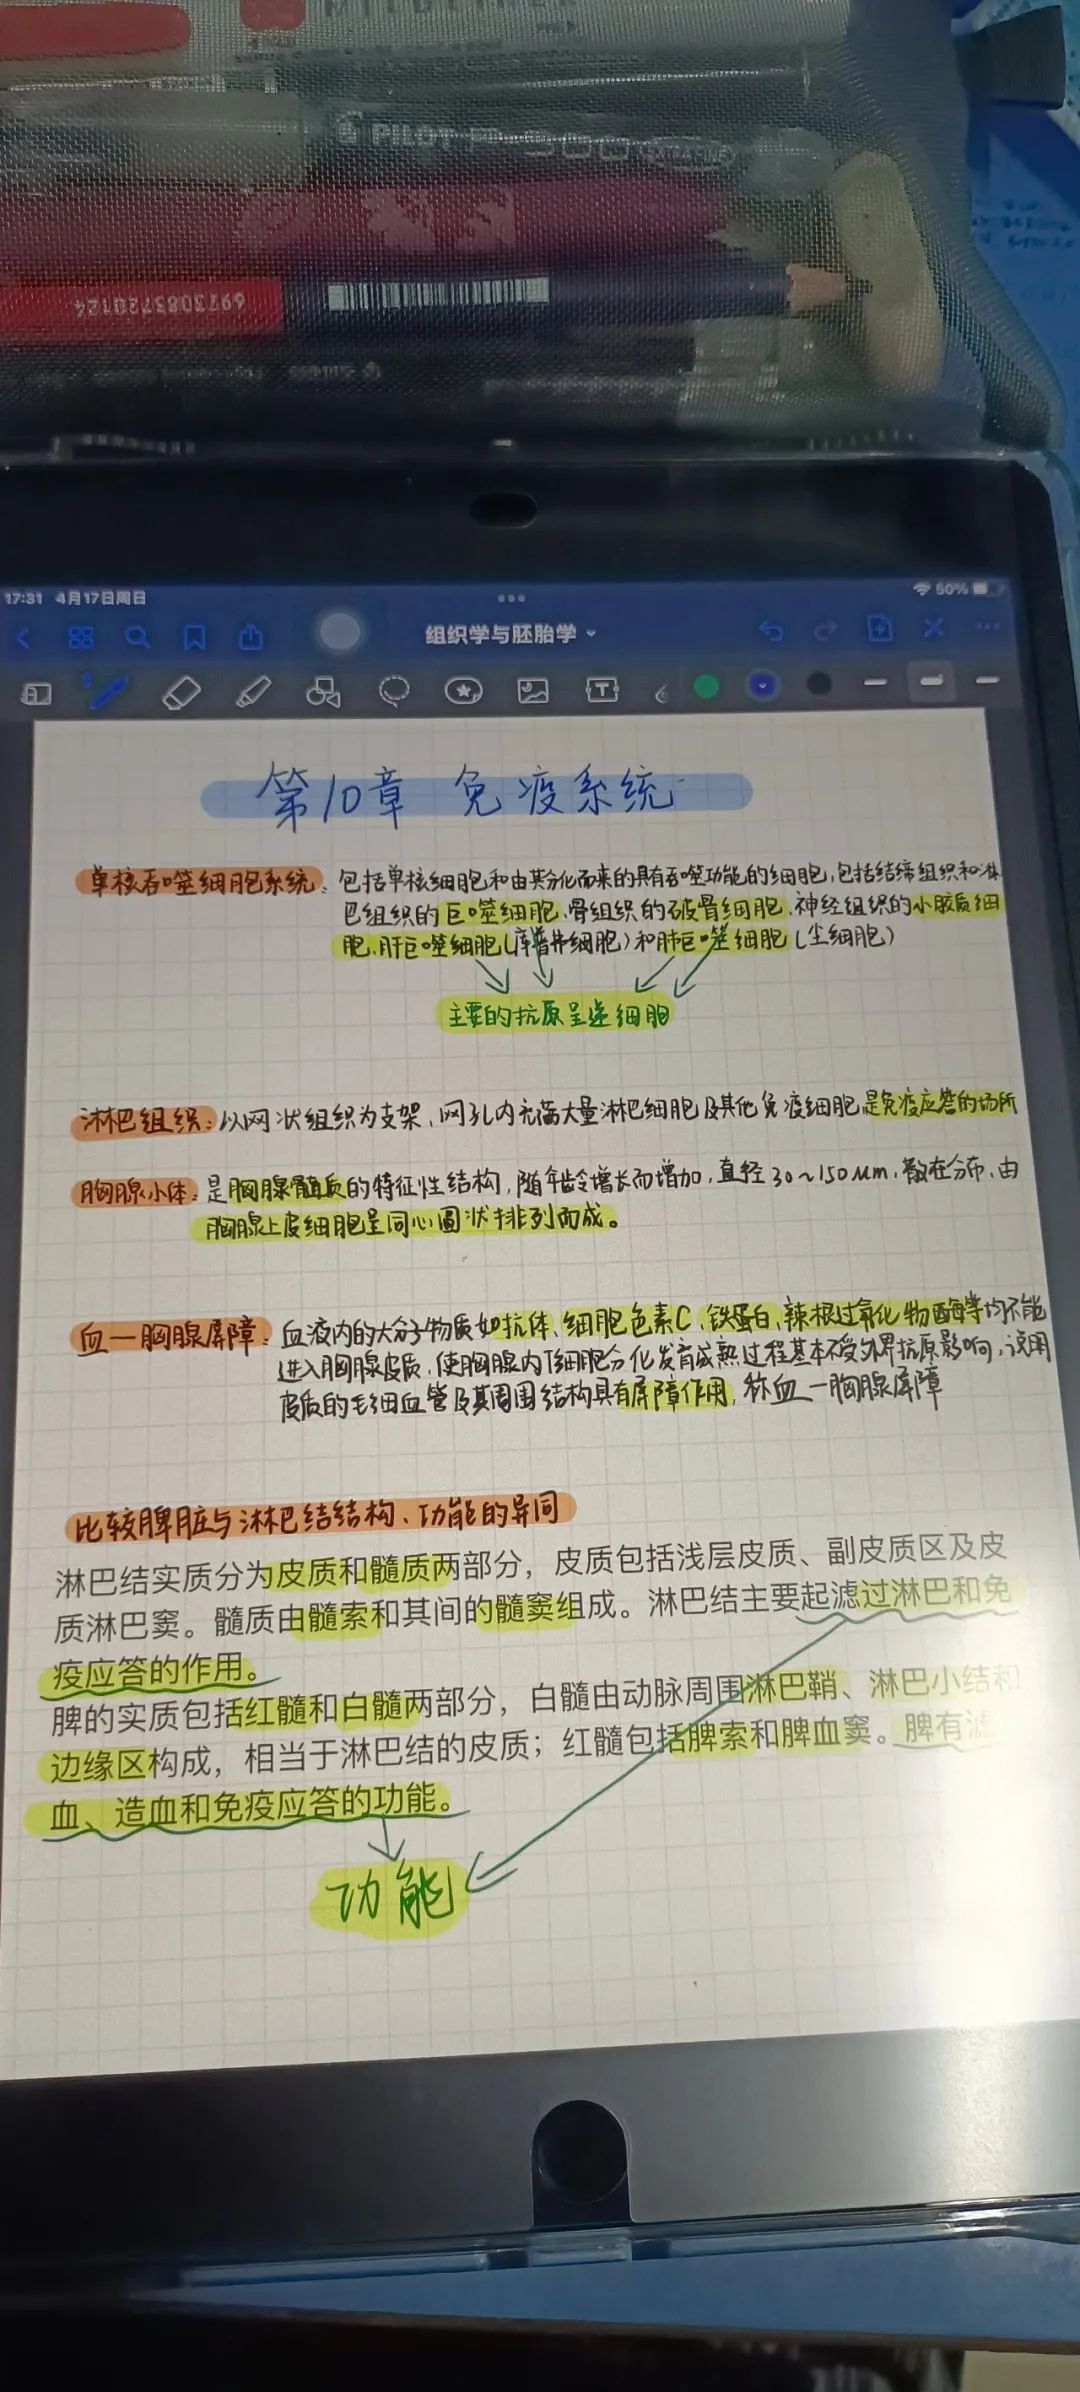 MILDLINER
PILOT
6973083720124
17:31 4月17日周日
50%
组织学与胚胎学
第10章 免疫系统
单核吞噬细胞系统：包括单核细胞和由其分化而来的具有吞噬功能的细胞，包括结缔组织和淋
巴组织的巨噬细胞、骨组织的破骨细胞、神经组织的小胶质细
胞、肝巨噬细胞（库普弗细胞）和肺巨噬细胞（尘细胞）
主要的抗原呈递细胞
淋巴组织：以网状组织为支架，网孔内充满大量淋巴细胞及其他免疫细胞是免疫应答的场所
胸腺小体：是胸腺髓质的特征性结构，随年龄增长而增加，直径30~150μm，散在分布、由
胸腺上皮细胞呈同心圆状排列而成。
血一胸腺屏障：血液内的大分子物质如抗体、细胞色素C、铁蛋白、辣根过氧化物酶等均不能
进入胸腺皮质，使胸腺内T细胞分化发育成熟过程基本不受外界抗原影响，说明
皮质的毛细血管及其周围结构具有屏障作用，称血一胸腺屏障
比较脾脏与淋巴结结构、功能的异同
淋巴结实质分为皮质和髓质两部分，皮质包括浅层皮质、副皮质区及皮
质淋巴窦。髓质由髓索和其间的髓窦组成。淋巴结主要起滤过淋巴和免
疫应答的作用。
脾的实质包括红髓和白髓两部分，白髓由动脉周围淋巴鞘、淋巴小结和
边缘区构成，相当于淋巴结的皮质；红髓包括脾索和脾血窦。脾有滤
血、造血和免疫应答的功能。
功能